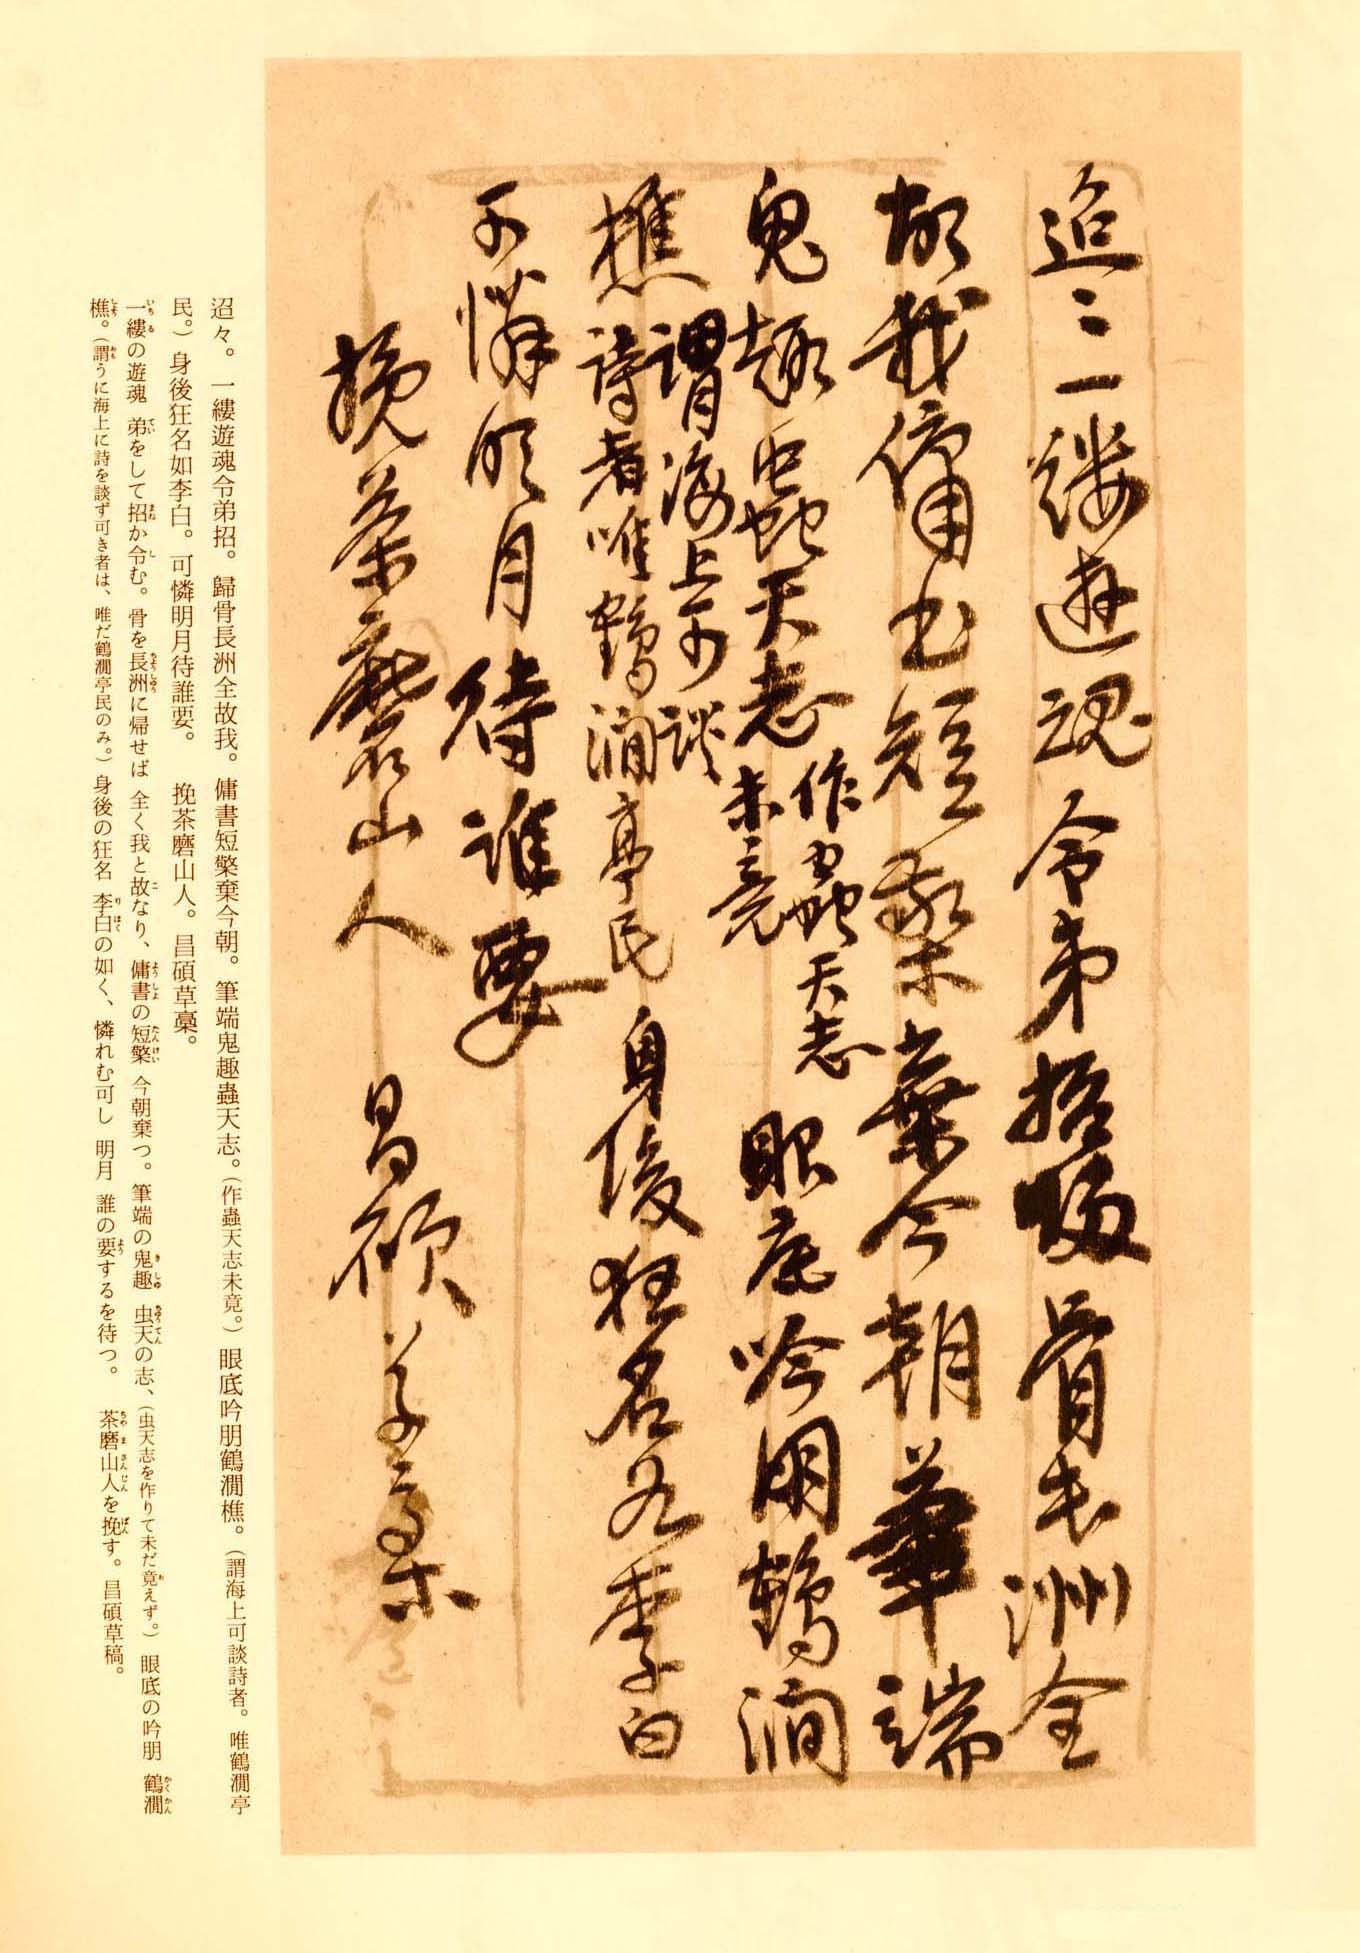 迢〻一縷遊魂令弟招歸骨長洲全
故我傭書短檠棄今朝筆端
鬼趣蟲天志
作蟲天志
未竟
眼底吟朋鶴澗
樵
謂海上可談
詩者唯鶴澗亭民
身後狂名如李白
可憐明月待誰要
挽茶磨山人
昌碩草稾
迢々。一縷遊魂令弟招。歸骨長洲全故我。傭書短檠棄今朝。筆端鬼趣蟲天志。(作蟲天志未竟。)眼底吟朋鶴澗樵。(謂海上可談詩者。唯鶴澗亭
民。)身後狂名如李白。可憐明月待誰要。 挽茶磨山人。昌碩草稾。
一縷の遊魂 弟をして招か令む。骨を長洲に帰せば 全く我と故なり、傭書の短檠 今朝棄つ。筆端の鬼趣 虫天の志、(虫天志を作りて未だ竟えず。)眼底の吟朋 鶴澗
樵。(謂うに海上に詩を談ず可き者は、唯だ鶴澗亭民のみ。)身後の狂名 李白の如く、憐れむ可し 明月 誰の要するを待つ。 茶磨山人を挽す。昌碩草稿。